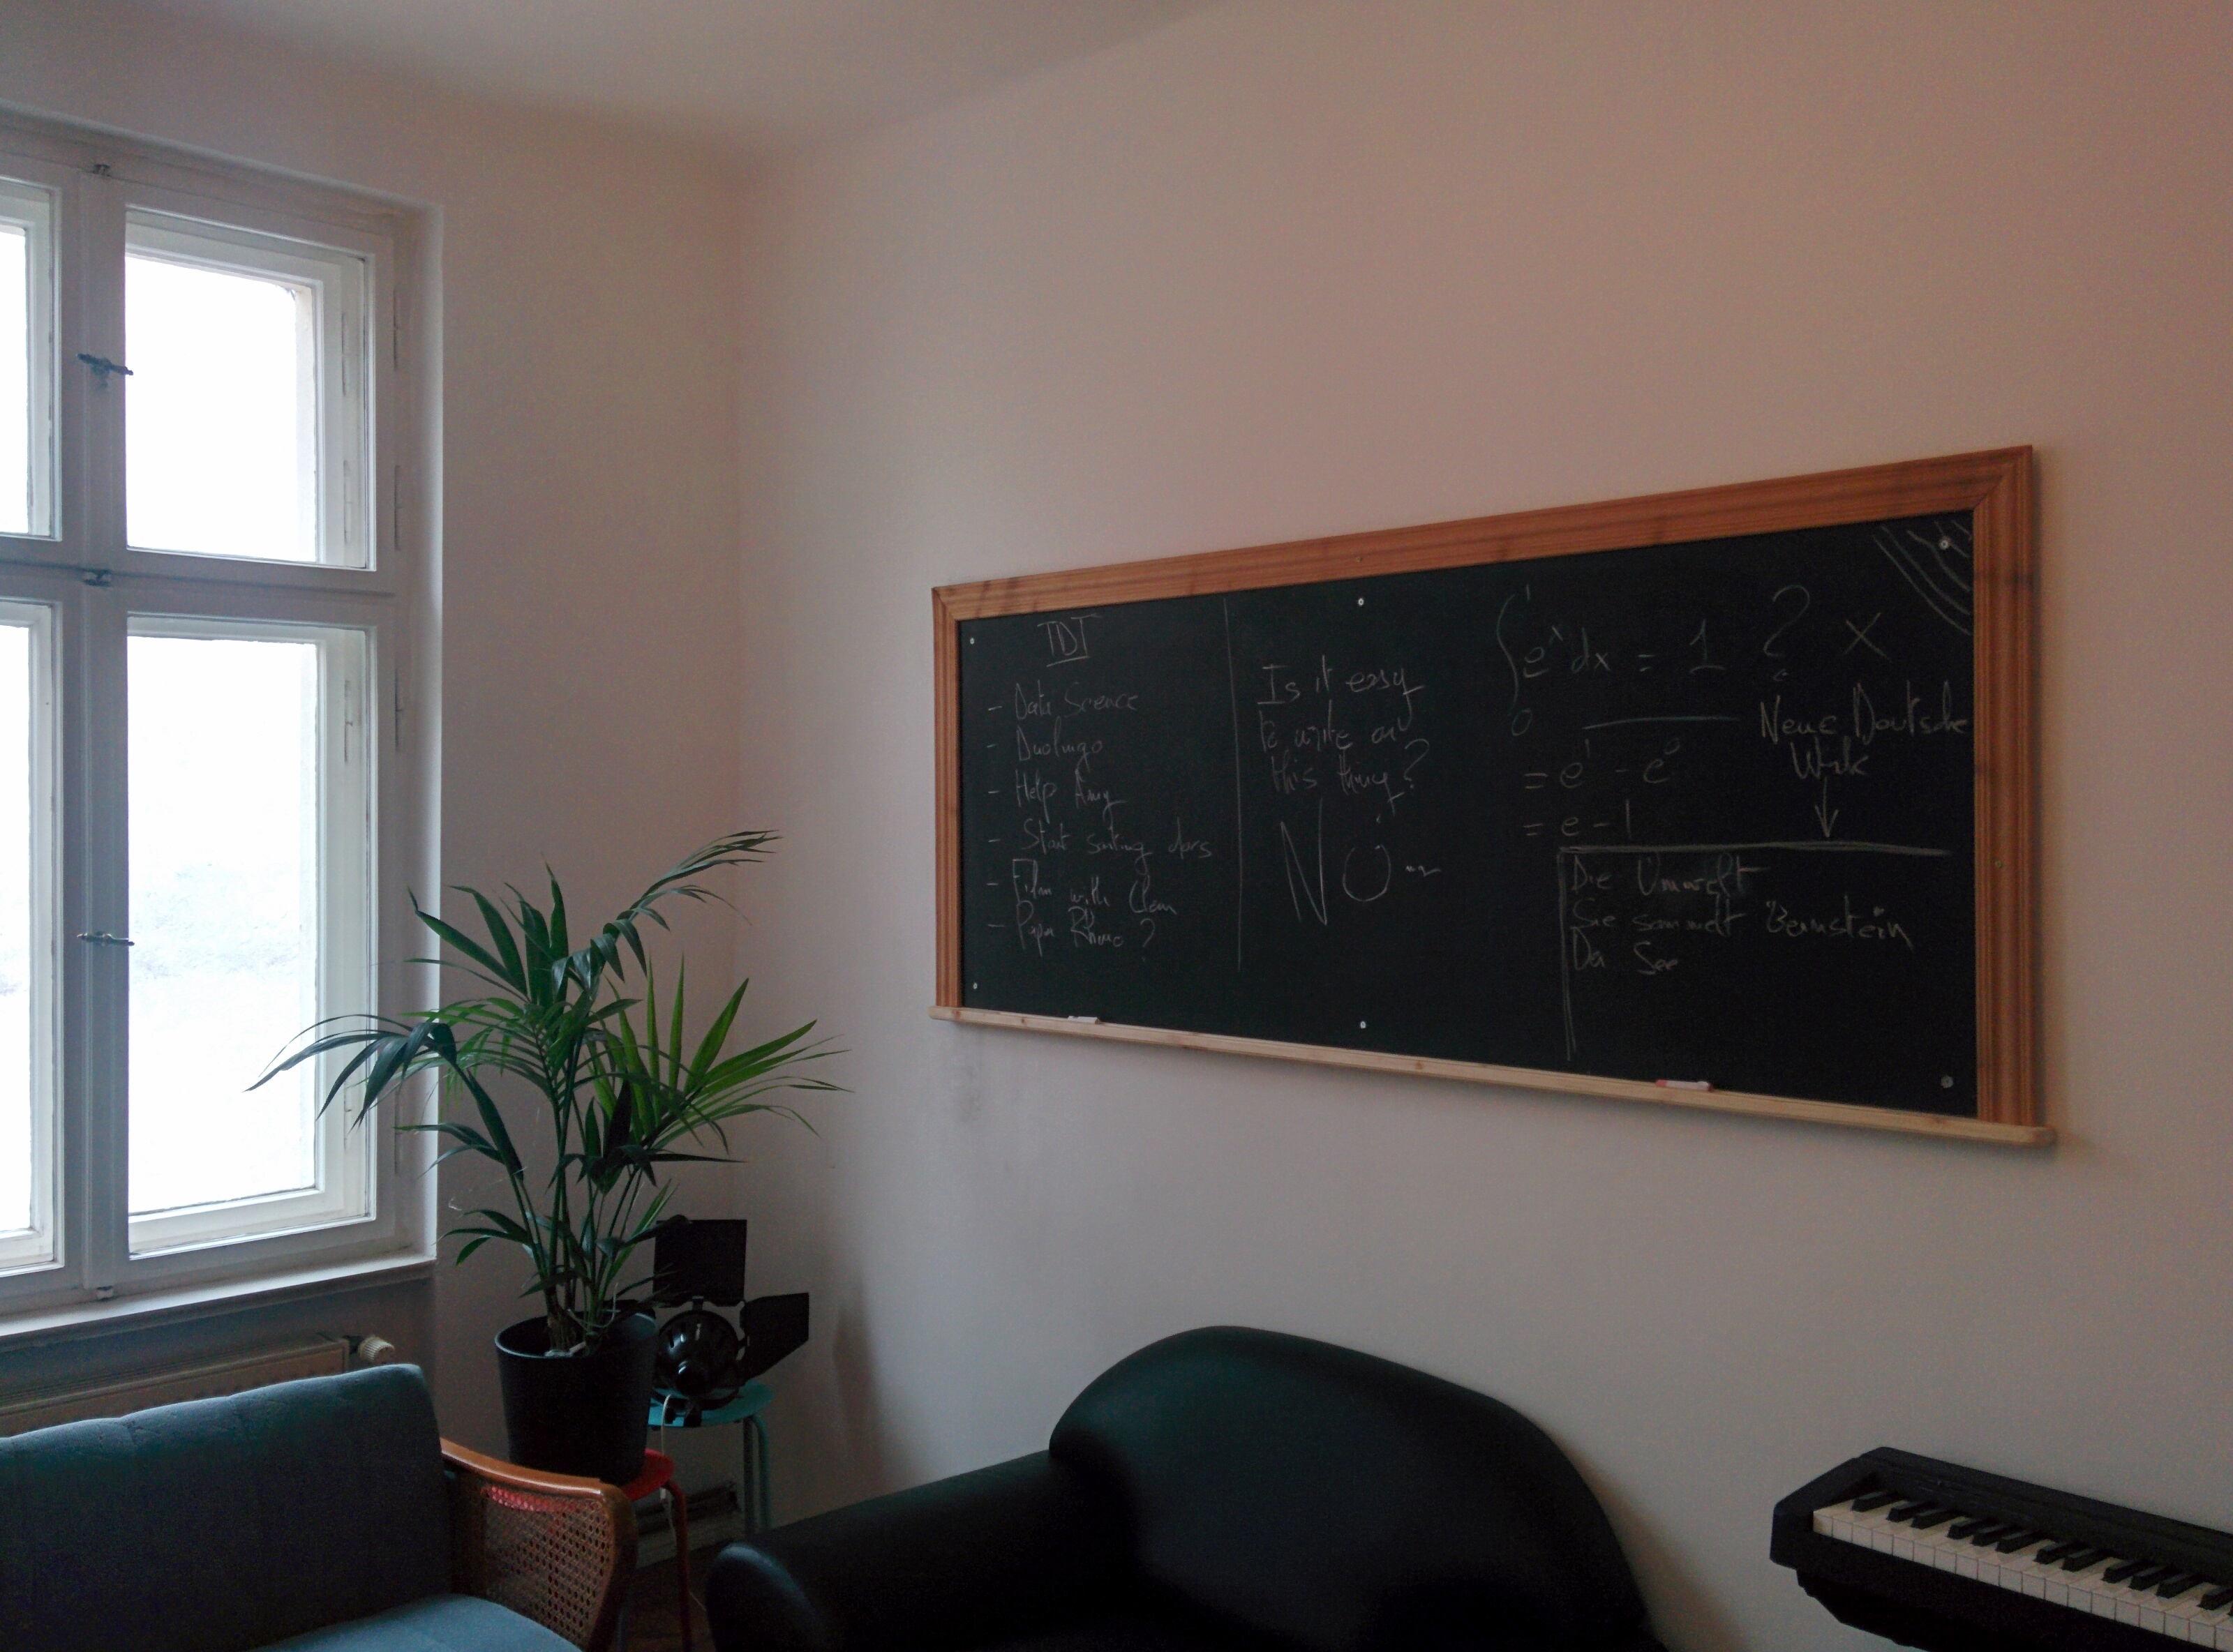 TDT
- Data Science
- Duolingo
- Help Amy
- Start
- Film with Clem
- Papa ?
Is it easy
to write on
this thing?
NO
∫₀¹ eˣ dx = 1 ? X
= e¹ - e⁰
= e - 1
Neue Deutsche
↓
Die Umwelt
Sie sammelt Bernstein
Der See